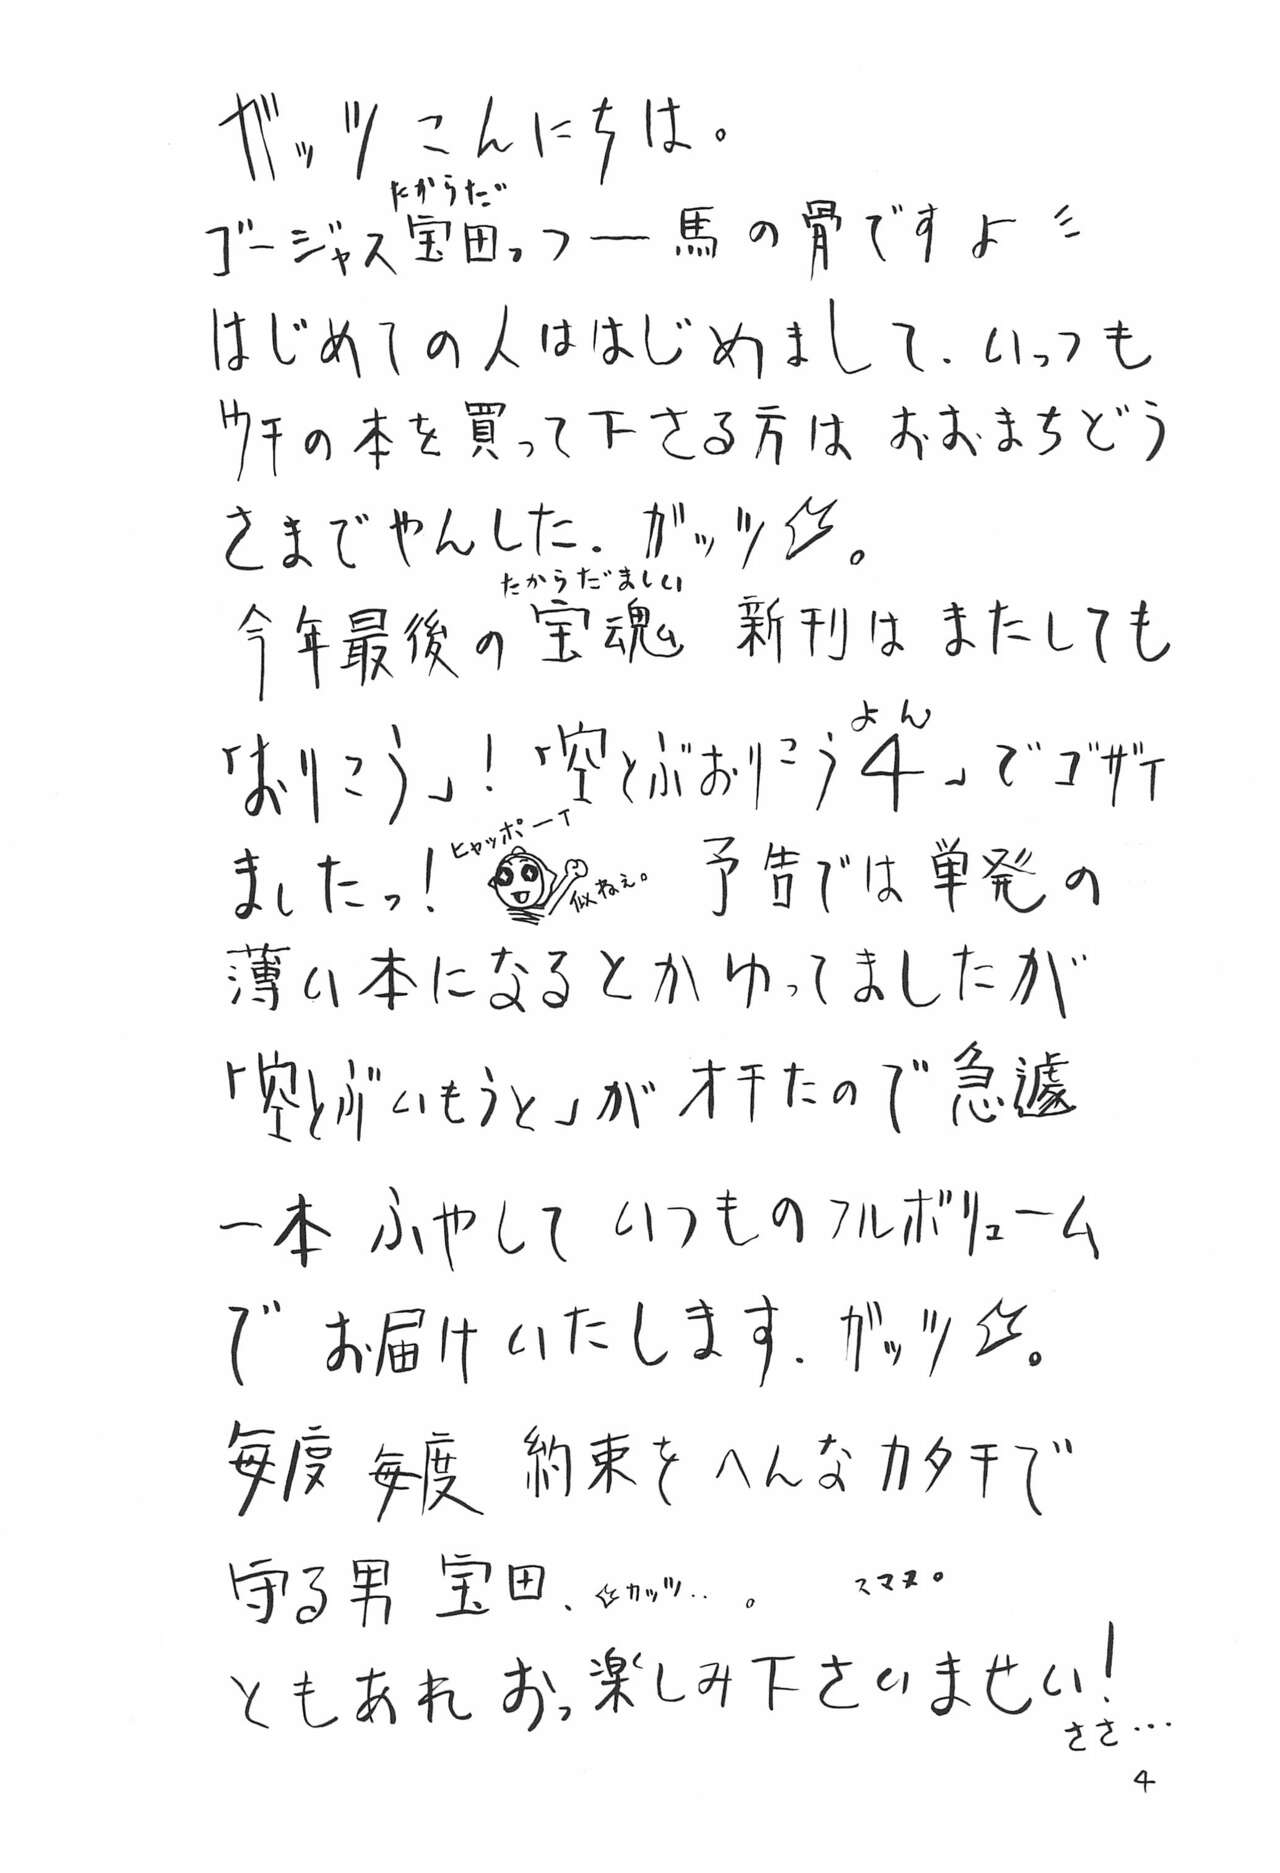 ガッツ こんにちは。
たからだ
ゴージャス宝田っつー馬の骨ですよ
はじめての人ははじめまして、いっつも
ウチの本を買って下さる方は おおまちどう
さまでやんした。ガッツ☆。
たからだましい
今年最後の宝魂 新刊は またしても
よん
「おりこう」!「空とぶおりこう4」でゴザイ
ヒャッポーイ
ましたっ! 似ねぇ。 予告では単発の
薄い本になるとかゆってましたが
「空とぶいもうと」がオチたので急遽
一本 ふやして いつものフルボリューム
で お届けいたします。ガッツ☆。
毎度 毎度 約束をへんなカタチで
守る男 宝田、☆ガッツ‥。 スマヌ。
ともあれ おっ楽しみ下さいませい!
ささ…
4